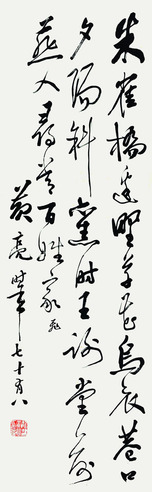 朱雀橋邊野草花烏衣巷口
夕陽斜舊時王謝堂前
燕入尋常百姓家飛
黄亮时年七十有八